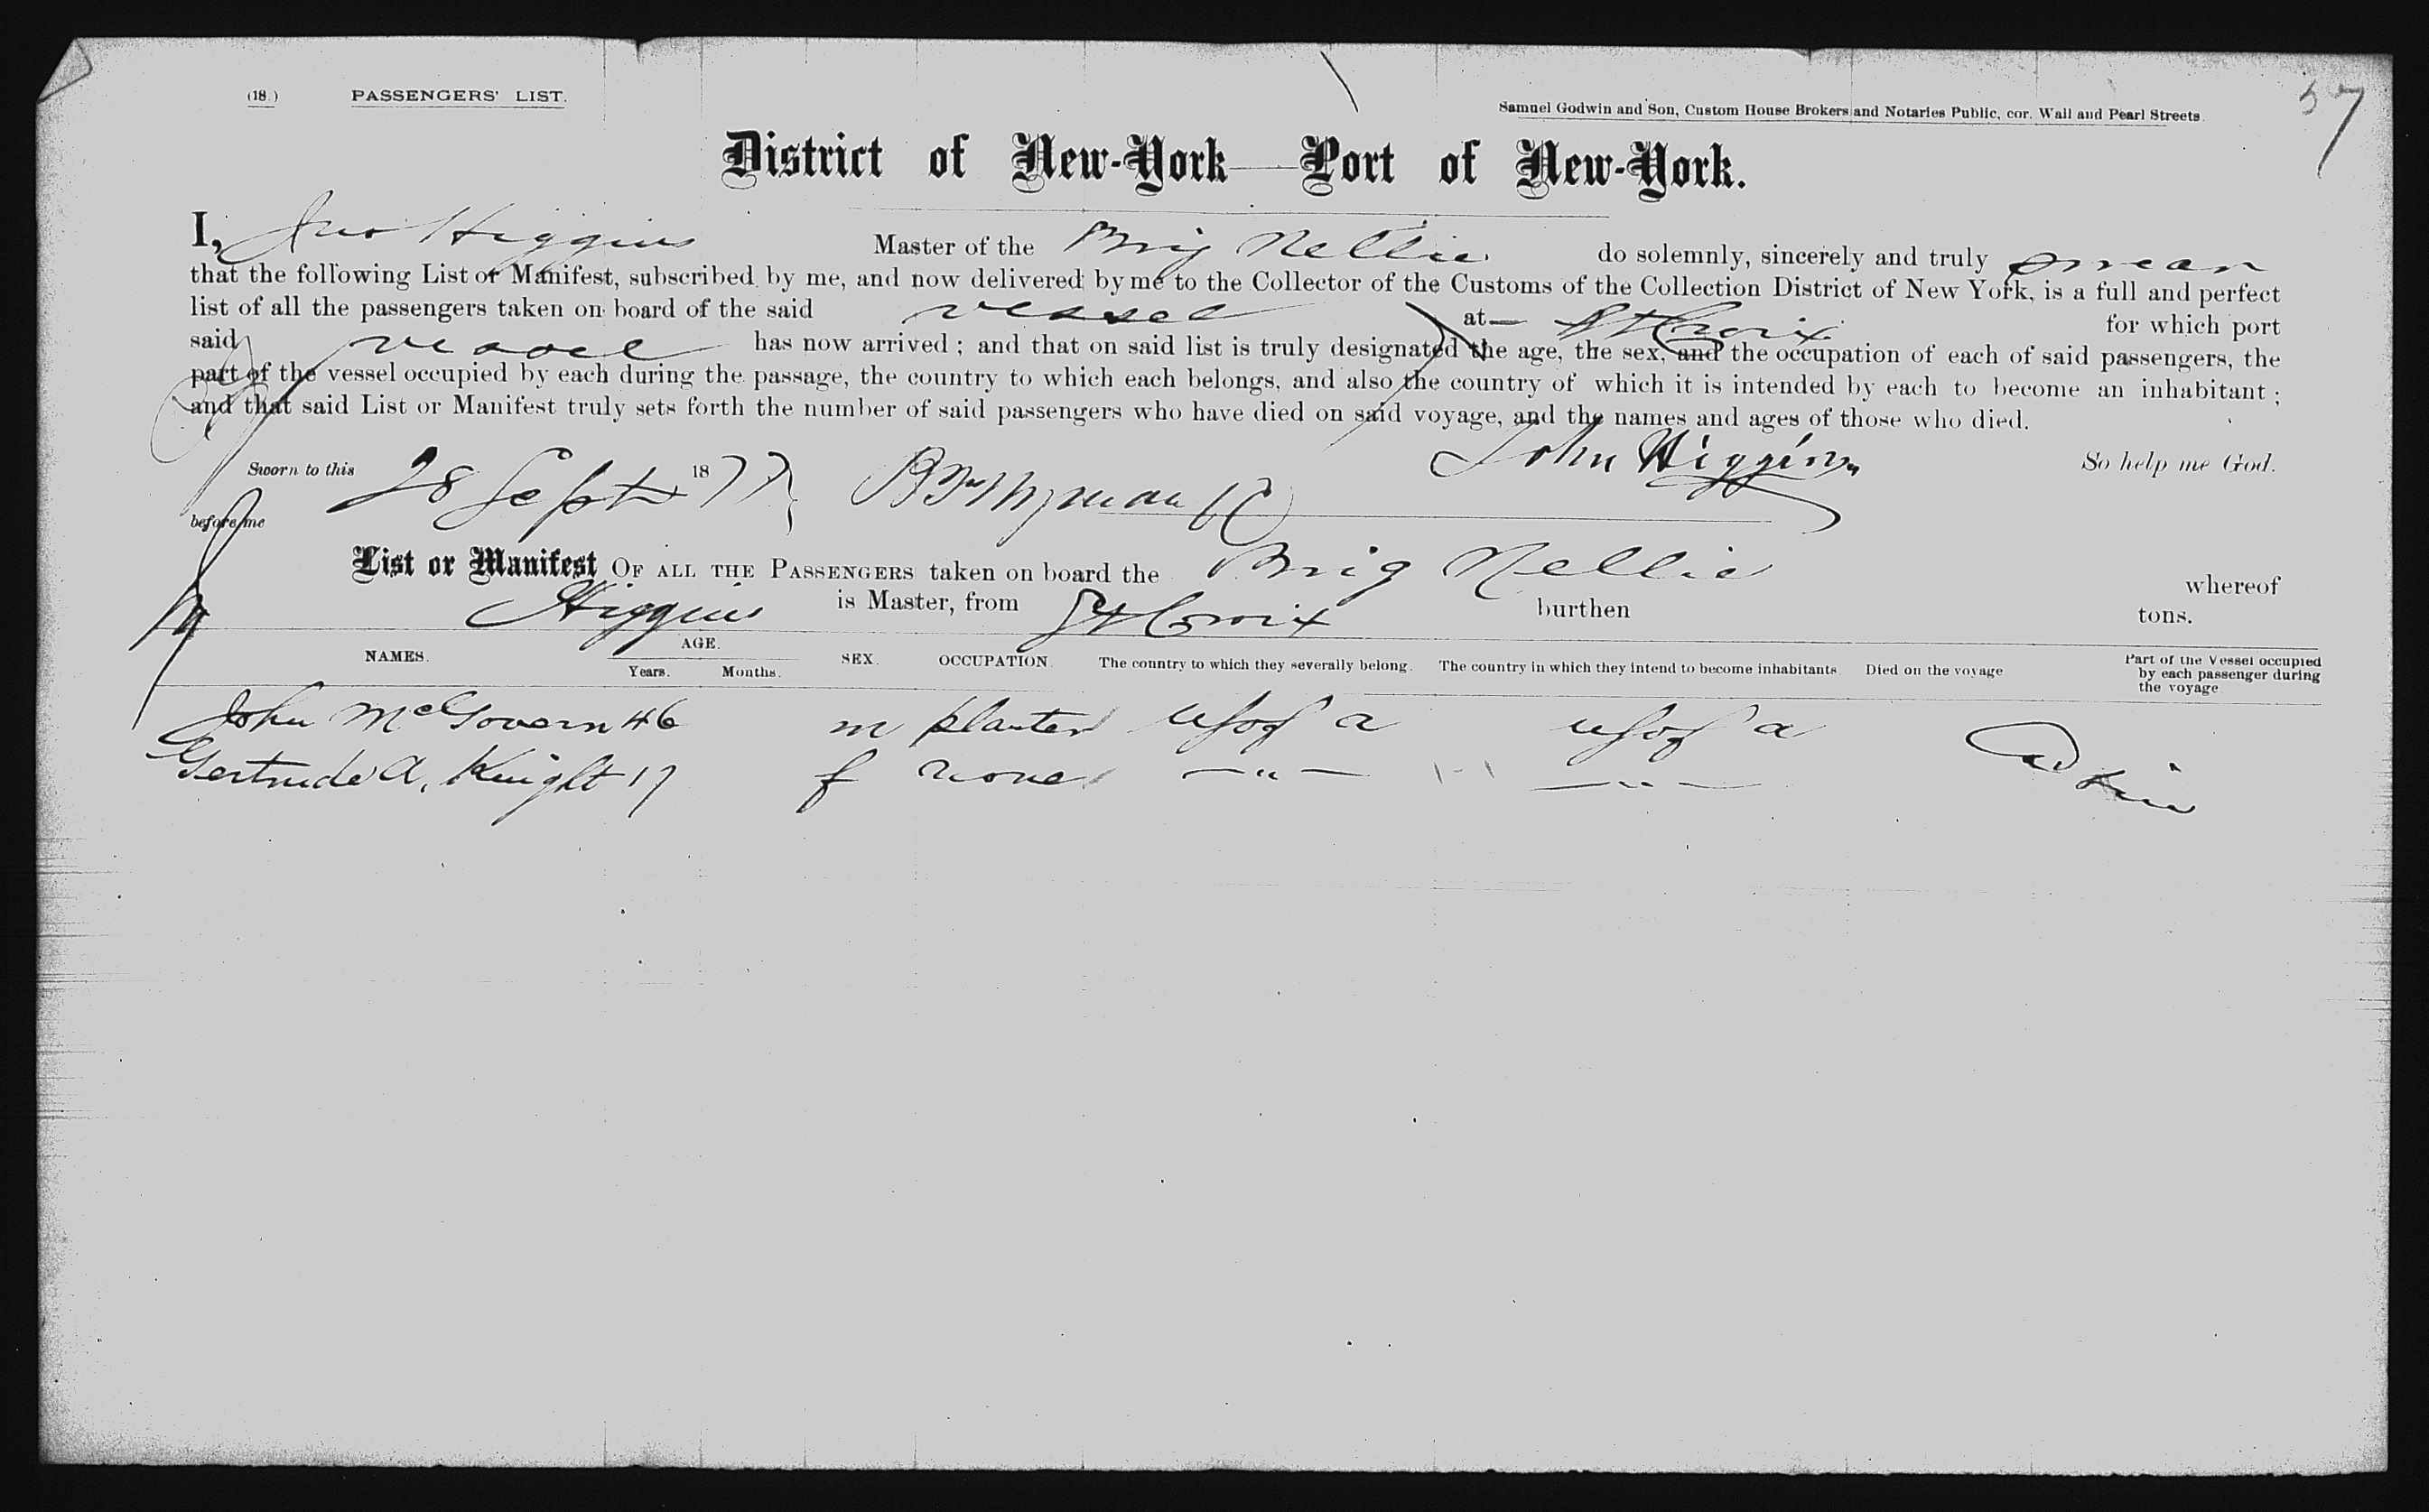 (18.) PASSENGERS' LIST.
Samuel Godwin and Son, Custom House Brokers and Notaries Public, cor. Wall and Pearl Streets.
57
District of New-York—Port of New-York.
I, Jno Higgins Master of the Brig Nellie do solemnly, sincerely and truly swear
that the following List or Manifest, subscribed by me, and now delivered by me to the Collector of the Customs of the Collection District of New York, is a full and perfect
list of all the passengers taken on board of the said vessel at St Croix for which port
said vessel has now arrived ; and that on said list is truly designated the age, the sex, and the occupation of each of said passengers, the
part of the vessel occupied by each during the passage, the country to which each belongs, and also the country of which it is intended by each to become an inhabitant ;
and that said List or Manifest truly sets forth the number of said passengers who have died on said voyage, and the names and ages of those who died.
Sworn to this 28 Sept 1877 John Higgins So help me God.
before me
List or Manifest OF ALL THE PASSENGERS taken on board the Brig Nellie whereof
Higgins is Master, from St Croix burthen tons.
NAMES. AGE. Years. Months. SEX. OCCUPATION. The country to which they severally belong. The country in which they intend to become inhabitants. Died on the voyage Part of the Vessel occupied by each passenger during the voyage
John McGovern 46 m planter U S of a U S of a
Gertrude A. Knight 17 f none —"— —"—